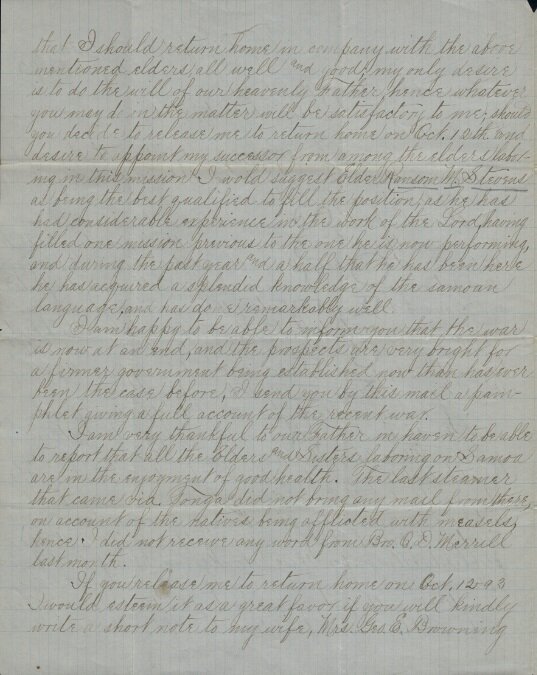 that I should return home in company with the above
mentioned elders all well and good; my only desire
is to do the will of our heavenly Father hence whatever
you may do in the matter will be satisfactory to me; should
you decide to release me to return home on Oct. 12th and
desire to appoint my successor from among the elders labor-
ing in this mission I wold suggest Elder Ransom M. Stevens
as being the best qualified to fill the position, as he has
had considerable experience in the work of the Lord, having
filled one mission previous to the one he is now performing,
and during the past year and a half that he has been here
he has acquired a splendid knowledge of the samoan
language, and has done remarkably well.
I am happy to be able to inform you that the war
is now at an end, and the prospects are very bright for
a firmer government being established now than has ever
been the case before, I send you by this mail a pam-
phlet giving a full account of the recent war.
I am very thankful to our Father in haven to be able
to report that all the Elders and Sisters laboring on Samoa
are in the enjoyment of good health. The last steamer
that came via. Tonga did not bring any mail from there,
on account of the natives being afflicted with measels,
hence I did not receive any word from Bro. C. D. Merrill
last month.
If you release me to return home on Oct. 12 93
I would esteem it as a great favor if you will kindly
write a short note to my wife, Mrs. Geo. E. Browning